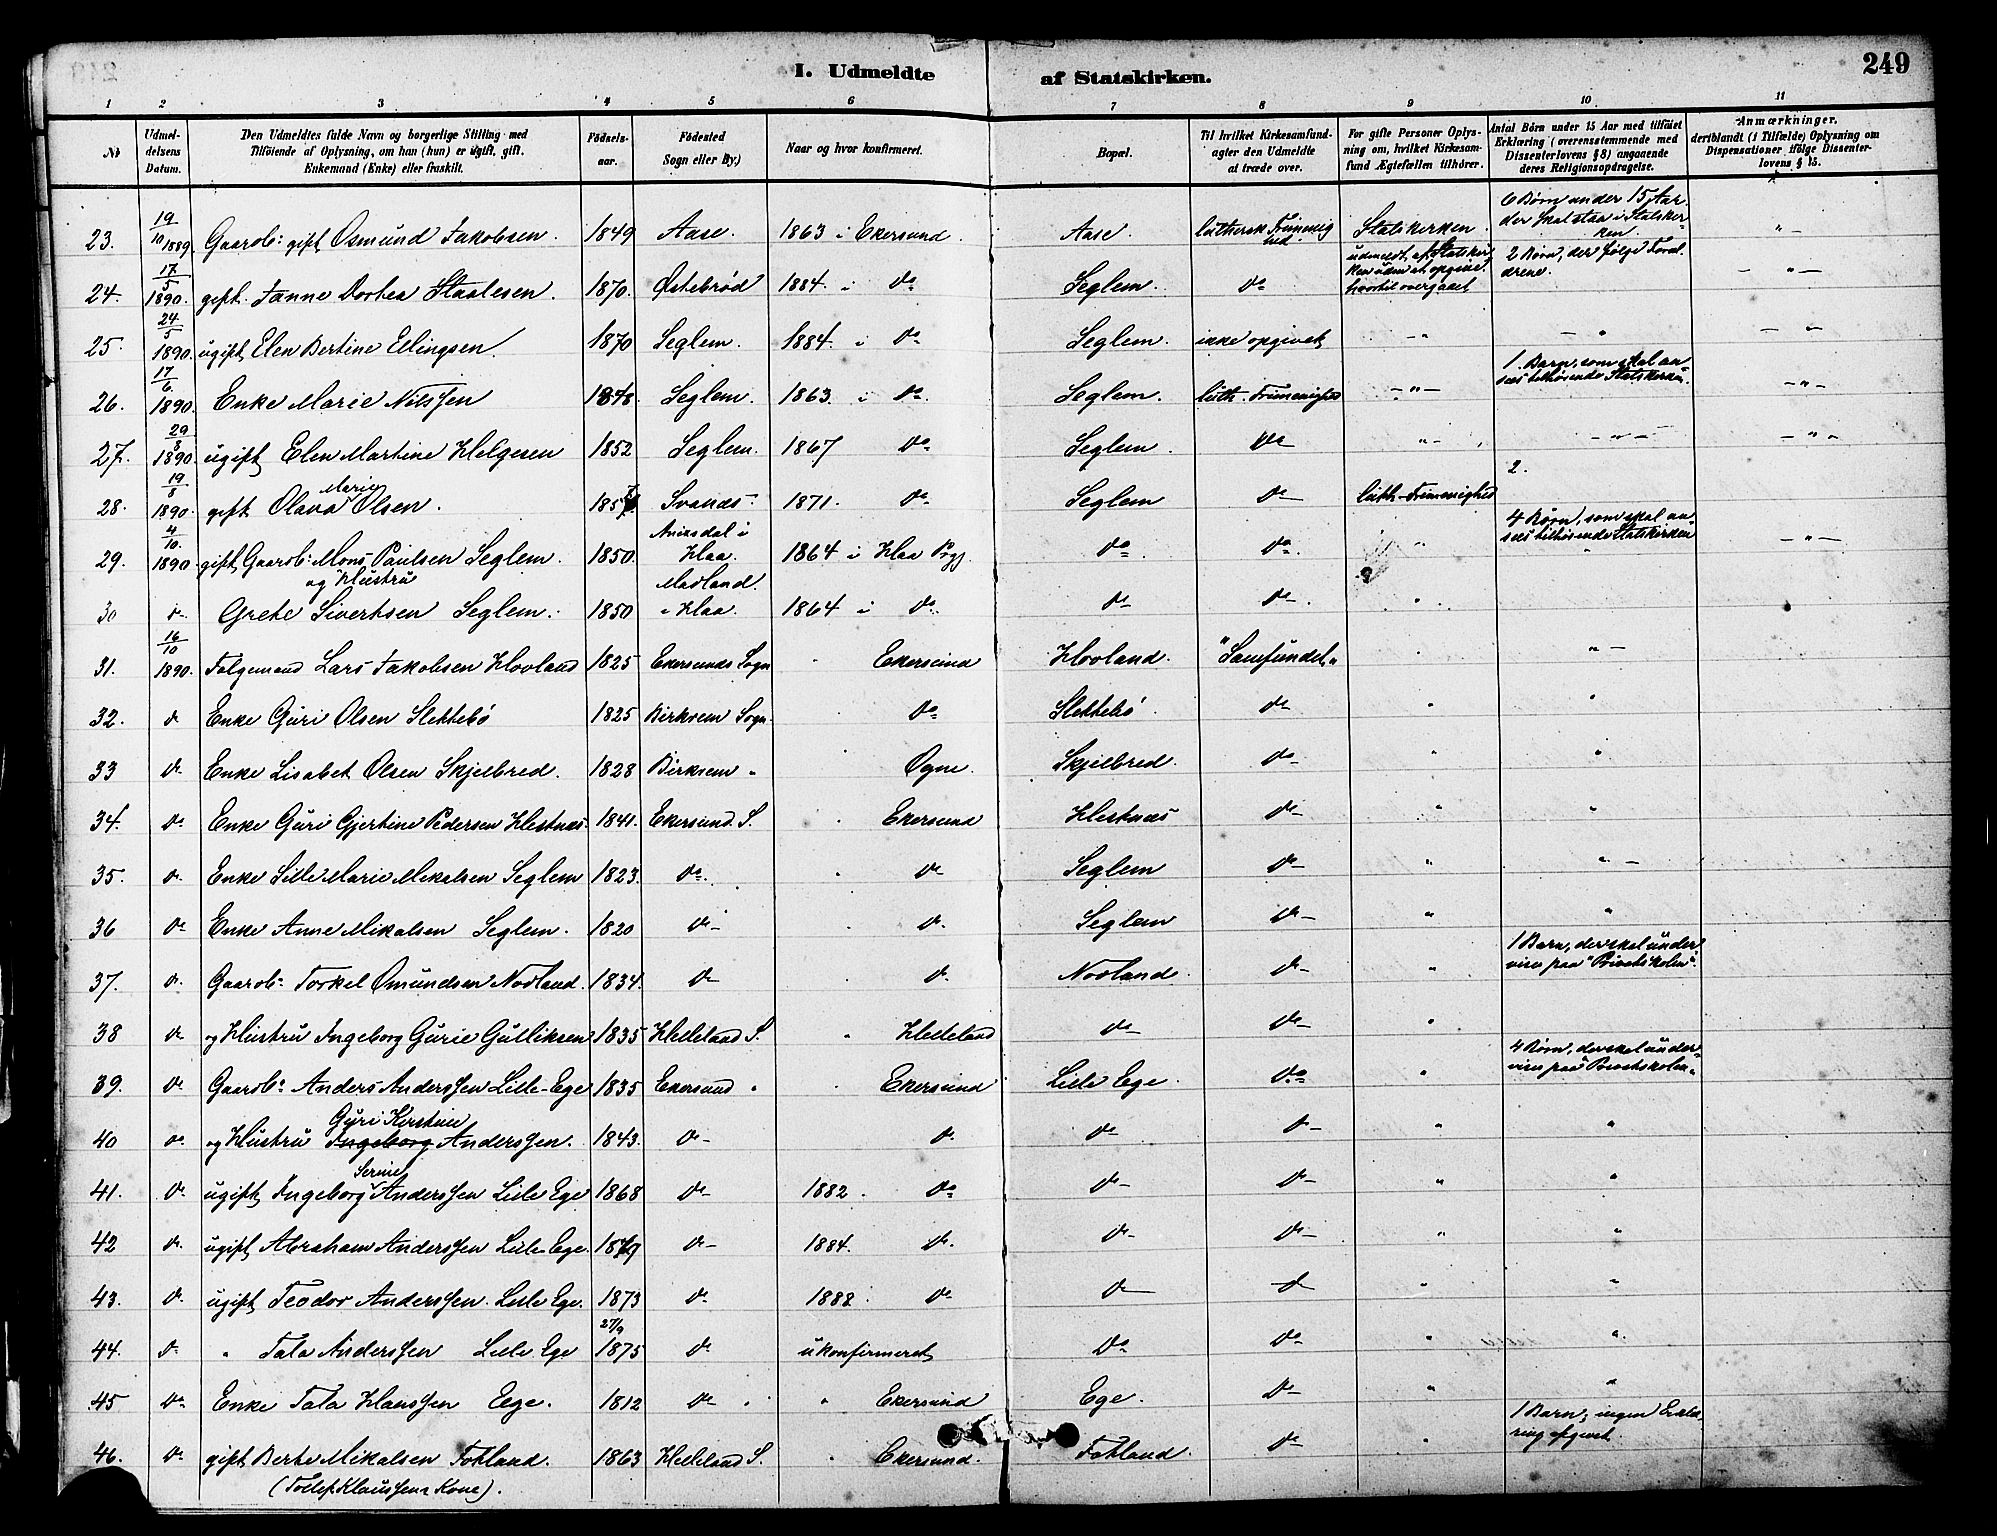 249
I. Udmeldte af Statskirken.
1 2 3 4 5 6 7 8 9 10 11
№ | Udmeldelsens Datum. | Den Udmeldtes fulde Navn og borgerlige Stilling med Tilføiende af Oplysning, om han (hun) er ugift, gift, Enkemand (Enke) eller fraskilt. | Fødselsaar. | Fødested (Sogn eller By.) | Naar og hvor konfirmeret. | Bopæl. | Til hvilket Kirkesamfund agter den Udmeldte at træde over. | For gifte Personer Oplysning om, hvilket Kirkesamfund Ægtefællen tilhører. | Antal Børn under 15 Aar med tilføiet Erklæring (overensstemmende med Dissenterlovens § 8) angaaende deres Religionsopdragelse. | Anmærkninger, deriblandt (i Tilfælde) Oplysning om Dispensationer ifølge Dissenterlovens § 15.
23. 19/10 1889. Gaarbr: gift Osmund Jakobsen. 1849 Aase. 1863 i Ekersund. Aase. luthersk Frimenighed. Statskirken. 6 Børn under 15 Aar der skal staa i Statskirken. " –
24. 17/5 1890. gift. Janne Dortea Staalesen. 1870. Østebrød 1884. i do Seglem. do udmeldt af Statskirken uden at opgive hvortil overgaaet 2 Børn, der følge Forældrene. – " –
25. 24/5 1890. ugift Elen Bertine Ellingsen. 1870 Seglem. 1884. i do Seglem. ikke opgivet – " – " – "
26. 17/6 1890. Enke Marie Nilssen 1848. Seglem. 1863 i do. Seglem. luth. Frimenighed – " – 1 Barn, som skal ansees tilhørende Statskirken. – " –
27. 29/8 1890 ugift Elen Martine Helgesen 1852 Seglem. 1867 do Seglem. do " – – " – – " –
28. 19/8 1890. gift Olava Marie Olsen. Svanes 1871. do Seglem do luth. Frimenighed 2.
29. 4/10. 1890. gift Gaarbr: Mons Paulsen Seglem. 1850. i Haa. 1864 i Haa Prgj. do do " 4 Børn, som skal ansees tilhørende Statskirken – " –
30 do og Hustru Grete Sivertsen Seglem. 1850 Madland i Haa. 1864 i do do do "
31. 16/10 1890. Folgemand Lars Jakobsen Hovland 1825 Ekersunds Sogn " Ekersund Hovland. "Samfundet" " " –
32. do Enke Guri Olsen Slettebø 1825 Birkrem Sogn. " do Slettebø. do " "
33 do Enke Lisabet Olsen Skjelbred. 1828 Birkrem " " Ogne. Skjelbred. do " "
34. do Enke Guri Gjertine Pedersen Hestnes. 1841. Ekersund S. " Ekersund Hestnæs do " "
35. do Enke Sille Marie Mikalsen Seglem 1823. do. " do Seglem do " " –
36 do Enke Anne Mikalsen Seglem. 1820 do " do Seglem do " "
37. do Gaarbr: Torkel Omundsen Nodland. 1834. do " do Nodland. do " 1 Barn, der skal undervises paa "Privatskolen".
38 do og Hustru Ingeborg Gurie Gulliksen 1835 Helleland S. " Helleland do do "
39. do Gaarbr: Anders Anderssen Lille Ege 1835 Ekersund " " Ekersund Lille Ege. do " 4 Børn, der skal undervises paa Privatskolen"
40 do og Hustru Guri Kirstine Ingeborg Anderssen. 1843. do do do do " "
41. do ugift Ingeborg Serine Anderssen Lille Ege 1868 do 1882. do do do " "
42 do ugift Abraham Anderssen Lille Ege. 1869 do 1884. do do do " "
43. do ugift Teodor Anderssen. Lille Ege. 1873 do 1888. do do do " "
44. do " Tala Anderssen Lille Ege 27/9 1875 do ukonfirmeret do do " "
45 do Enke Tala Hanssen Eege. 1812 do " " Ekersund Ege. do " "
46. do gift Berte Mikalsen Fotland. 1863 Helleland S. " Ekersund. Fotland. do " 1 Barn, ingen Erklæring afgivet.
(Tollef Klaussens Kone).